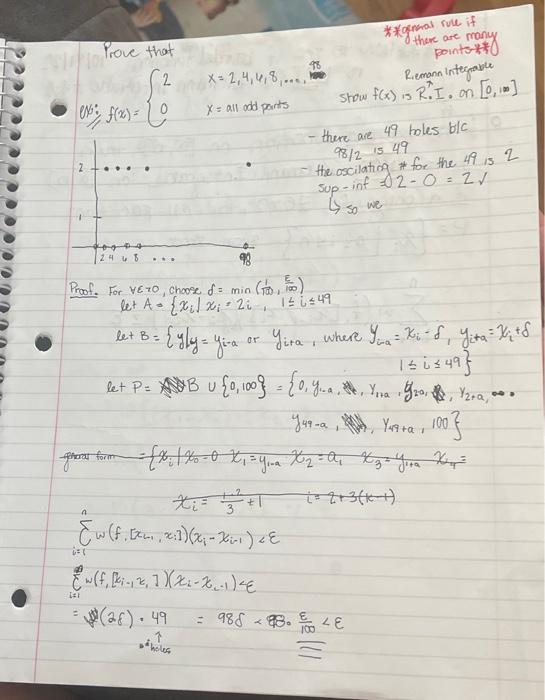 **general rule if
there are many
points**
Prove that
Riemann Integrable
ex: f(x) = { 2 x = 2, 4, 6, 8, ..., 98
0 x = all odd points
show f(x) is R.I. on [0, 100]
- there are 49 holes b/c
98/2 is 49
- the oscilating # for the 49 is 2
sup - inf ⇒ 2 - 0 = 2 ✓
↳ so we
2
1
1 2 4 6 8 ... 98
Proof. For ∀ε>0, choose δ = min (1/100, ε/100)
let A = {xi | xi = 2i, 1 ≤ i ≤ 49
let B = {y | y = yi-a or yi+a, where yi-a = xi - δ, yi+a = xi + δ
1 ≤ i ≤ 49}
let P = B ∪ {0, 100} = {0, y1-a, y1+a, y2-a, y2+a, ...
y49-a, y49+a, 100}
general form = {xi | x0 = 0 x1 = y1-a x2 = a1 x3 = y1+a x4 =
xi = i-2/3 + 1 i = 2+3(k-1)
n Σ i=1 w(f, [xi-1, xi])(xi - xi-1) < ε
Σ i=1 w(f, [xi-1, xi])(xi - xi-1) < ε
= (2δ) · 49 = 98δ < 98 · ε/100 < ε
↑
# holes